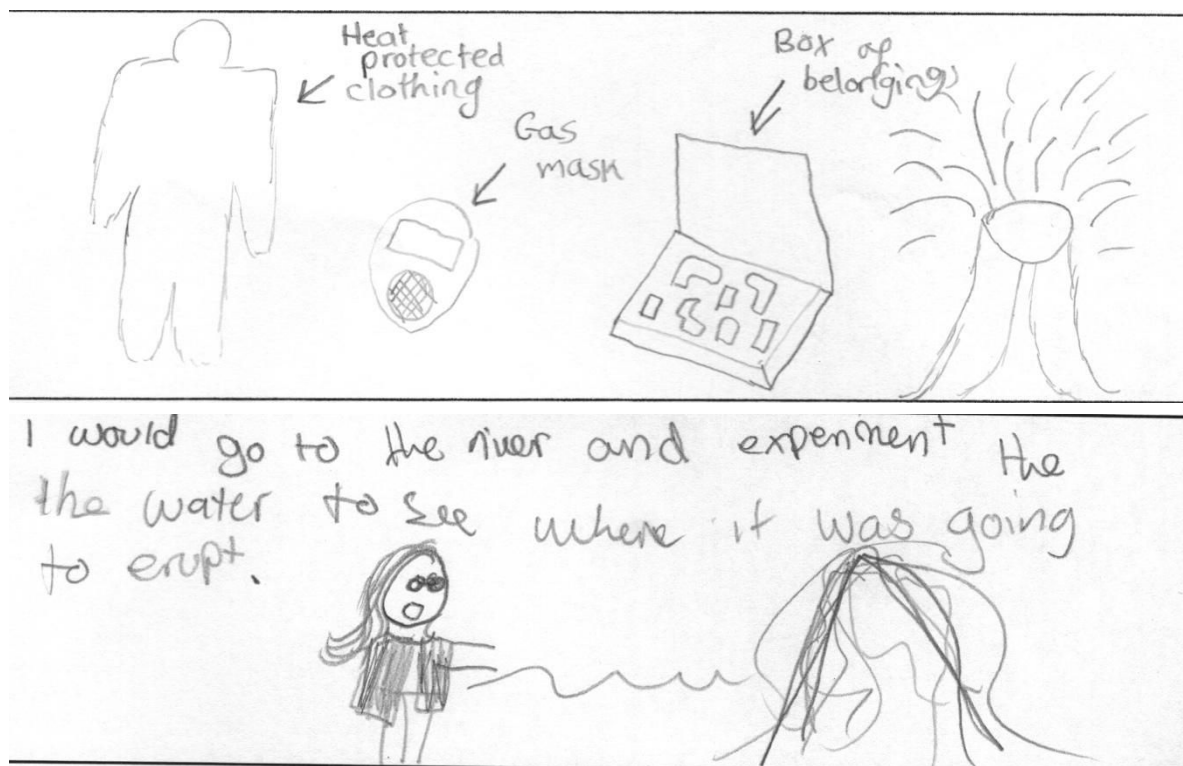 Heat
protected
clothing
Gas
mask
Box of
belongings
I would go to the river and experiment the
the water to see where it was going
to erupt.